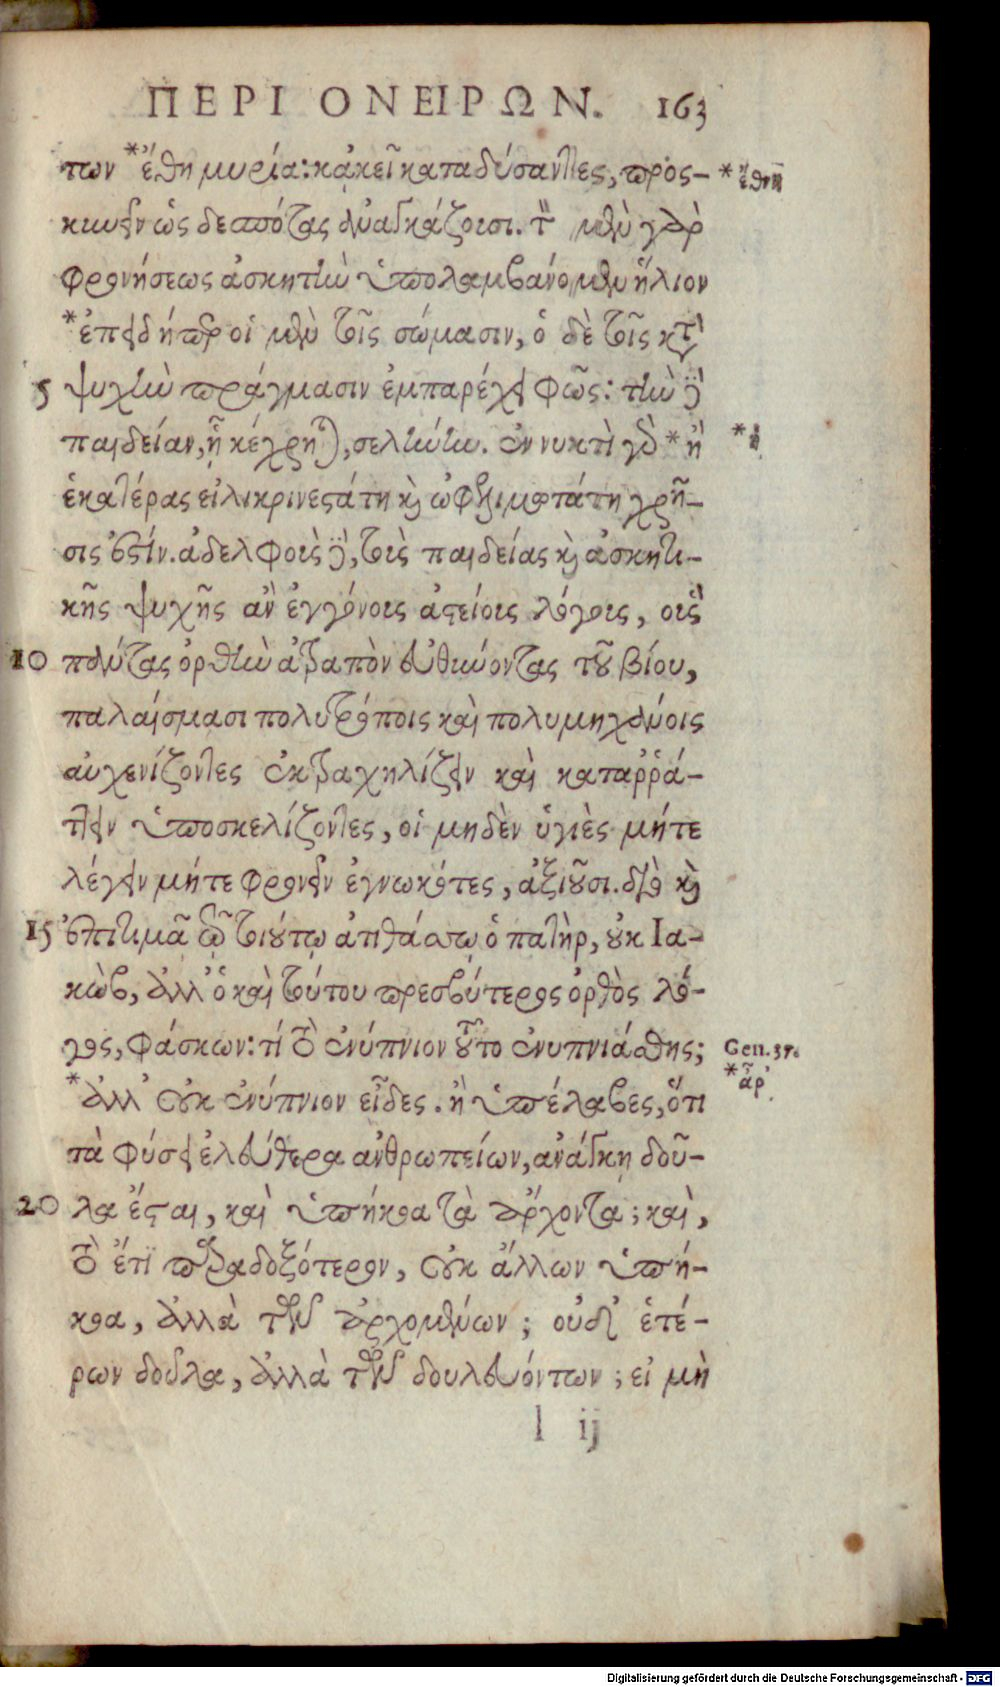 ΠΕΡΙ ΟΝΕΙΡΩΝ. 163
των *ἔθη μυρία: κἀκεῖ καταδύσαντες, προς-
* ἔθνη
κυνεῖν ὡς δεσπότας ἀναγκάζουσι. τὸν μὲν γὰρ
φρονήσεως ἀσκητὴν ὑπολαμβάνομεν ἥλιον
*ἐπειδήπερ οἱ μὲν τοῖς σώμασιν, ὁ δὲ τοῖς κατὰ
5 ψυχὴν πράγμασιν ἐμπαρέχει φῶς: τὴν δὲ
παιδείαν, ᾗ κέχρηται, σελήνην. ἐν νυκτὶ γὰρ *ἢ
* ἡ
ἑκατέρας εἰλικρινεστάτη καὶ ὠφελιμωτάτη χρῆ-
σις ἐστίν. ἀδελφοὺς δὲ, τοὺς παιδείας καὶ ἀσκητι-
κῆς ψυχῆς ἂν ἐγγόνους ἀστείους λόγους, οὓς
10 πάντας ὀρθὴν ἀτραπὸν εὐθύνοντας τοῦ βίου,
παλαίσμασι πολυτρόποις καὶ πολυμηχάνοις
αὐχενίζοντες ἐκτραχηλίζειν καὶ καταῤῥά-
τειν ὑποσκελίζοντες, οἱ μηδὲν ὑγιὲς μήτε
λέγειν μήτε φρονεῖν ἐγνωκότες, ἀξιοῦσι. διὸ καὶ
15 ἐπιτιμᾷ τῷ τοιούτῳ ἀτιθάσσῳ ὁ πατὴρ, οὐκ Ια-
κὼβ, ἀλλ' ὁ καὶ τούτου πρεσβύτερος ὀρθὸς λό-
γος, φάσκων: τί τὸ ἐνύπνιον τοῦτο ἐνυπνιάσθης;
Gen. 37.
*ἀλλ' οὐκ ἐνύπνιον εἶδες. ἢ ὑπέλαβες, ὅτι
* ἆρ'
τὰ φύσει ἐλεύθερα ἀνθρωπείων, ἀνάγκῃ δοῦ-
20 λα ἔσται, καὶ ὑπήκοα τὰ ἄρχοντα; καὶ,
τὸ ἔτι παραδοξότερον, οὐκ ἄλλων ὑπή-
κοα, ἀλλὰ τῶν ἀρχομένων; οὐδ' ἑτέ-
ρων δοῦλα, ἀλλὰ τῶν δουλευόντων; εἰ μὴ
l ij
Digitalisierung gefördert durch die Deutsche Forschungsgemeinschaft - DFG